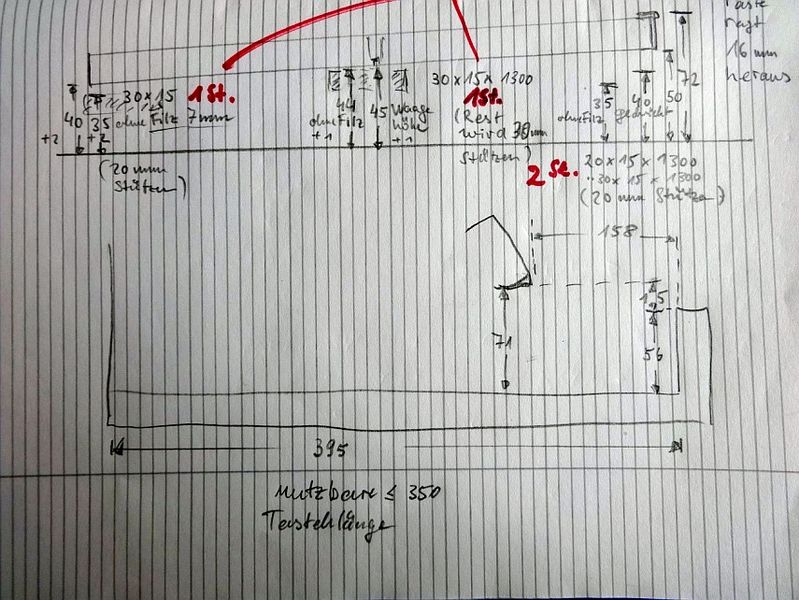 Taste
ragt
16 mm
heraus
30 x 15
1 St.
40
35
ohne Filz
7 mm
+2
+2
(20 mm
Stützen)
44
ohne Filz
+1
45
Waage
höhe
+1
30 x 15 x 1300
1 St.
(Rest
wird 30 mm
Stützen)
35
ohne Filz
40
gedrückt
50
72
2 St.
20 x 15 x 1300
30 x 15 x 1300
(20 mm Stützen)
158
71
15
56
395
nutzbare ≤ 350
Tastenlänge